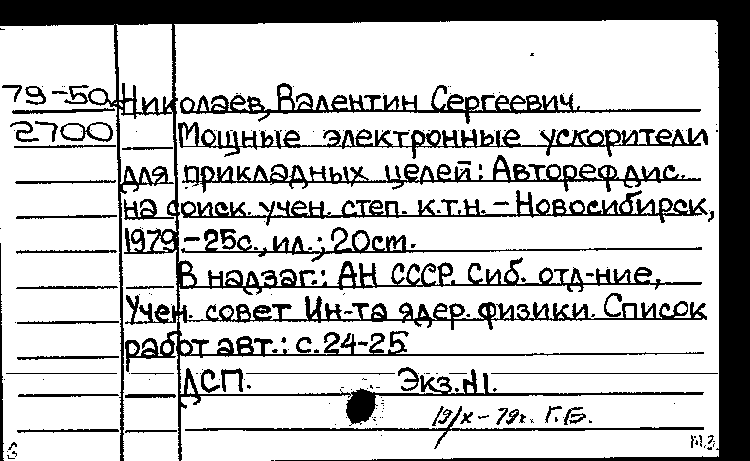 79-50 Николаев, Валентин Сергеевич.
2700 Мощные электронные ускорители
для прикладных целей: Автореф дис.
на соиск. учен. степ. к.т.н. – Новосибирск,
1979. – 25с., ил.; 20см.
В надзаг.: АН СССР. Сиб. отд-ние,
Учен. совет Ин-та ядер. физики. Список
работ авт.: с.24-25.
ДСП. Экз.№1.
19/X – 79г. Г.Б.
М.З.